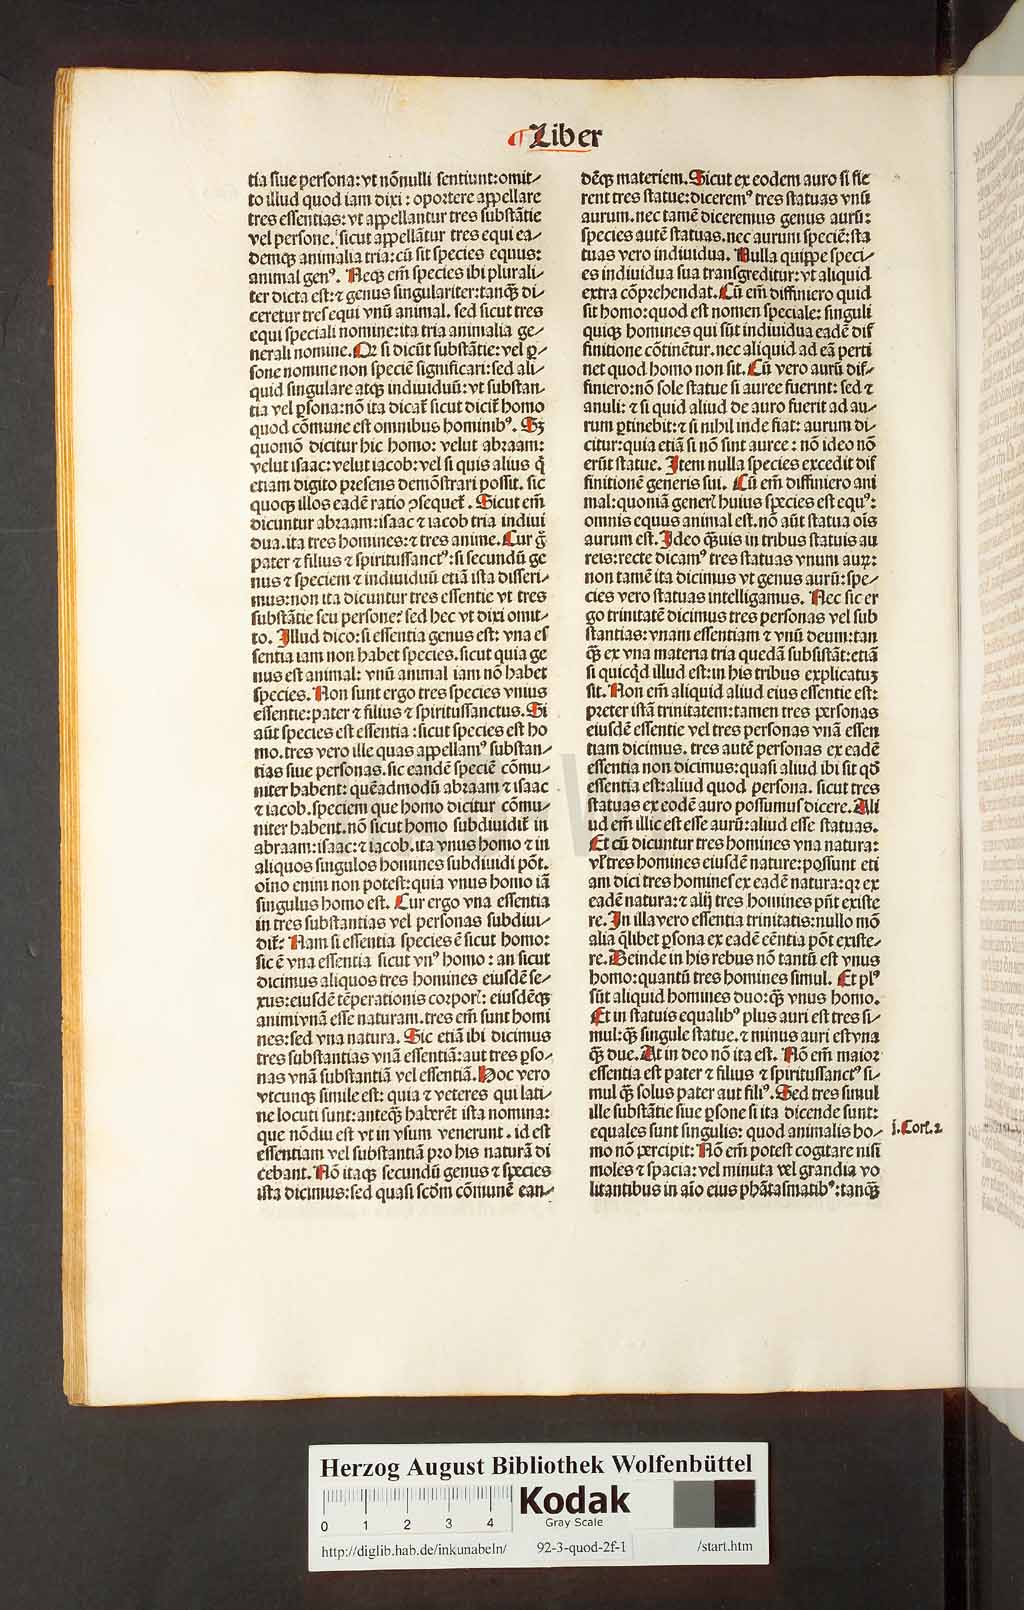 ¶ Liber
tia siue persona: vt nōnulli sentiunt: omit⸗
to illud quod iam dixi: oportere appellare
tres essentias: vt appellantur tres substātie
vel persone. sicut appellātur tres equi ea⸗
demqꝫ animalia tria: cū sit species equus:
animal genꝰ. Neqꝫ em̄ species ibi plurali⸗
ter dicta est: ⁊ genus singulariter: tanqꝫ̄ di⸗
ceretur tres equi vnū animal. sed sicut tres
equi speciali nomine: ita tria animalia ge⸗
nerali nomine. Qꝛ si dicūt substātie: vel ꝑ⸗
sone nomine non speciē significari: sed ali⸗
quid singulare atqꝫ indiuiduū: vt substan⸗
tia vel ꝑsona: nō ita dicat̄ sicut dicit̄ homo
quod cōmune est omnibus hominibꝰ. Sꝫ
quomō dicitur hic homo: velut abraam:
velut isaac: velut iacob: vel si quis alius q̄
etiam digito presens demōstrari possit. sic
quoqꝫ illos eadē ratio ↄsequet̄. Sicut em̄
dicuntur abraam: isaac ⁊ iacob tria indiui
dua. ita tres homines: ⁊ tres anime. Cur g̊
pater ⁊ filius ⁊ spiritussanctꝰ: si secundū ge
nus ⁊ speciem ⁊ indiuiduū etiā ista disseri⸗
mus: non ita dicuntur tres essentie vt tres
substātie seu persone? sed hec vt dixi omit⸗
to. Illud dico: si essentia genus est: vna es
sentia iam non habet species. sicut quia ge
nus est animal: vnū animal iam nō habet
species. Non sunt ergo tres species vnius
essentie: pater ⁊ filius ⁊ spiritussanctus. Si
aūt species est essentia: sicut species est ho
mo. tres vero ille quas appellamꝰ substan⸗
tias siue personas. sic eandē speciē cōmu⸗
niter habent: quēadmodū abraam ⁊ isaac
⁊ iacob. speciem que homo dicitur cōmu⸗
niter habent. nō sicut homo subdiuidit̄ in
abraam: isaac: ⁊ iacob. ita vnus homo ⁊ in
aliquos singulos homines subdiuidi pōt.
oīno enim non potest: quia vnus homo iā
singulus homo est. Cur ergo vna essentia
in tres substantias vel personas subdiui⸗
dit̄? Nam si essentia species ē sicut homo:
sic ē vna essentia sicut vnꝰ homo: an sicut
dicimus aliquos tres homines eiusdē se⸗
xus: eiusdē tēperationis corporꝭ: eiusdēqꝫ
animi vnā esse naturam. tres em̄ sunt homi
nes: sed vna natura. Sic etiā ibi dicimus
tres substantias vnā essentiā: aut tres ꝑso⸗
nas vnā substantiā vel essentiā. Hoc vero
vtcunqꝫ simile est: quia ⁊ veteres qui lati⸗
ne locuti sunt: anteqꝫ̄ haberēt ista nomina:
que nōdiu est vt in vsum venerunt. id est
essentiam vel substantiā pro his naturā di
cebant. Nō itaqꝫ secundū genus ⁊ species
ista dicimus: sed quasi scd̄m cōmunē ean⸗
dēqꝫ materiem. Sicut ex eodem auro si fie
rent tres statue: diceremꝰ tres statuas vnū
aurum. nec tamē diceremus genus aurū:
species autē statuas. nec aurum speciē: sta
tuas vero indiuidua. Nulla quippe speci⸗
es indiuidua sua transgreditur: vt aliquid
extra cōprehendat. Cū em̄ diffiniero quid
sit homo: quod est nomen speciale: singuli
quiqꝫ homines qui sūt indiuidua eadē dif
finitione cōtinētur. nec aliquid ad eā perti
net quod homo non sit. Cū vero aurū dif⸗
finiero: nō sole statue si auree fuerint: sed ⁊
anuli: ⁊ si quid aliud de auro fuerit ad au⸗
rum ꝑtinebit: ⁊ si nihil inde fiat: aurum di⸗
citur: quia etiā si nō sint auree: nō ideo nō
erūt statue. Item nulla species excedit dif
finitionē generis sui. Cū em̄ diffiniero ani
mal: quoniā generꝭ huius species est equꝰ:
omnis equus animal est. nō aūt statua oīs
aurum est. Ideo qꝫ̄uis in tribus statuis au
reis: recte dicamꝰ tres statuas vnum auꝝ:
non tamē ita dicimus vt genus aurū: spe⸗
cies vero statuas intelligamus. Nec sic er
go trinitatē dicimus tres personas vel sub
stantias: vnam essentiam ⁊ vnū deum: tan
qꝫ̄ ex vna materia tria quedā subsistāt: etiā
si quicqd̓ illud est: in his tribus explicatuꝫ
sit. Non em̄ aliquid aliud eius essentie est:
preter istā trinitatem: tamen tres personas
eiusdē essentie vel tres personas vnā essen
tiam dicimus. tres autē personas ex eadē
essentia non dicimus: quasi aliud ibi sit qd̓
essentia est: aliud quod persona. sicut tres
statuas ex eodē auro possumus dicere. Ali
ud em̄ illic est esse aurū: aliud esse statuas.
Et cū dicuntur tres homines vna natura:
vꝉ tres homines eiusdē nature: possunt eti
am dici tres homines ex eadē natura: qꝛ ex
eadē natura: ⁊ alij tres homines pn̄t existe
re. In illa vero essentia trinitatis: nullo mō
alia q̄libet ꝑsona ex eadē eēntia pōt existe⸗
re. Deinde in his rebus nō tantū est vnus
homo: quantū tres homines simul. Et plꝰ
sūt aliquid homines duo: qꝫ̄ vnus homo.
Et in statuis equalibꝰ plus auri est tres si⸗
mul: qꝫ̄ singule statue. ⁊ minus auri est vna
qꝫ̄ due. At in deo nō ita est. Nō em̄ maior
essentia est pater ⁊ filius ⁊ spiritussanctꝰ si⸗
mul qꝫ̄ solus pater aut filiꝰ. Sed tres simul
ille substātie siue ꝑsone si ita dicende sunt:
equales sunt singulis: quod animalis ho⸗
mo nō percipit: Nō em̄ potest cogitare nisi
moles ⁊ spacia: vel minuta vel grandia vo
litantibus in aīo eius phātasmatibꝰ: tanqꝫ̄
j. Corī. 2
Herzog August Bibliothek Wolfenbüttel
0 1 2 3 4
Kodak
Gray Scale
http://diglib.hab.de/inkunabeln/ 92-3-quod-2f-1 /start.htm